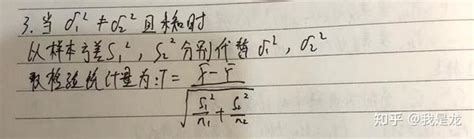 3. 当 σ₁² ≠ σ₂² 且未知时
以样本方差 S₁², S₂² 分别代替 σ₁², σ₂²
取检验统计量为: T = (x̄ - ȳ) / √(S₁²/n₁ + S₂²/n₂)
知乎 @我是龙